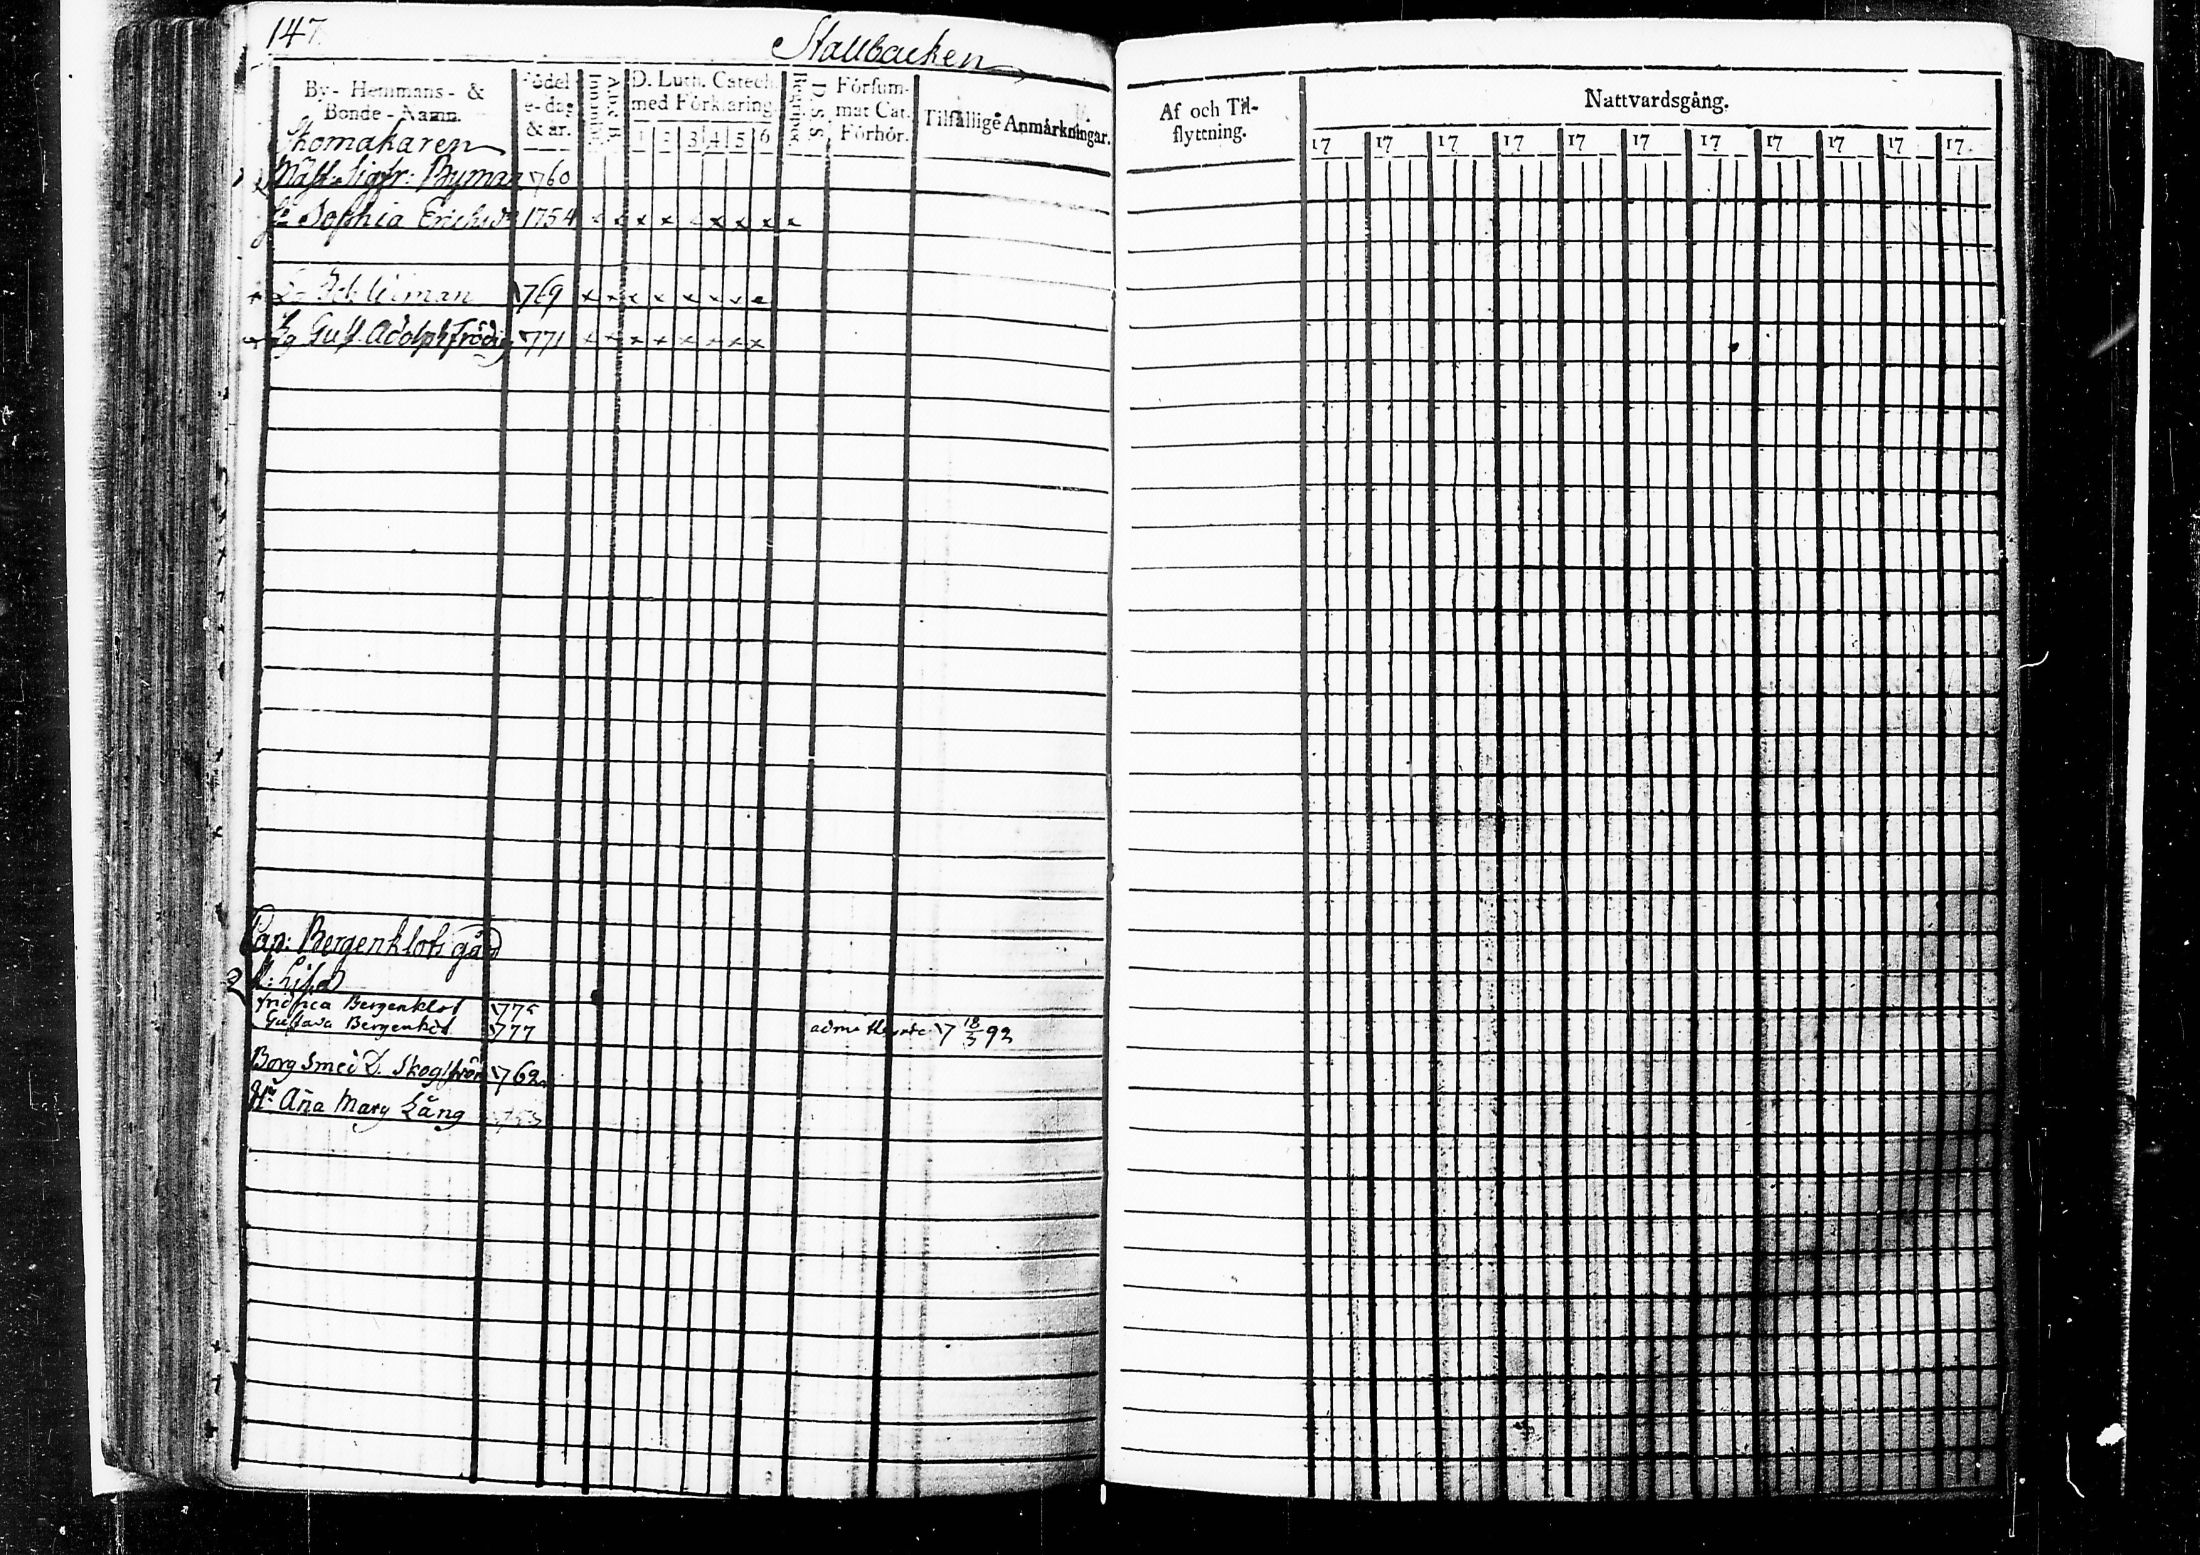 147.
Stallbacken
By- Hemmans- & Bonde-Namn.
Födelse-dag & år.
Innanläs.
A.b.c. B.
D. Luth. Catech. med Förklaring.
1 2 3 4 5 6
Begrepet
D. S. S.
Försummat Cat. Förhör.
Tilfällige Anmärkningar.
Skomakaren
Mäst. Sigfr: Byman 760
Sophia Ericksdr 1754 x x x x x x x x x
man 769 x x x x x x x
Lg Gust. Adolph Frödig 771 x x x x x x x x
Cap: Bergenklots gård
P: Lisa
Fridrica Bergenklot 775
Gustava Bergenklot 777 17 18/3 92
Borgsmed D. Skogström 762
Hu Aña Mary Lång
Af och Tilflyttning.
Nattvardsgång.
17 17 17 17 17 17 17 17 17 17 17